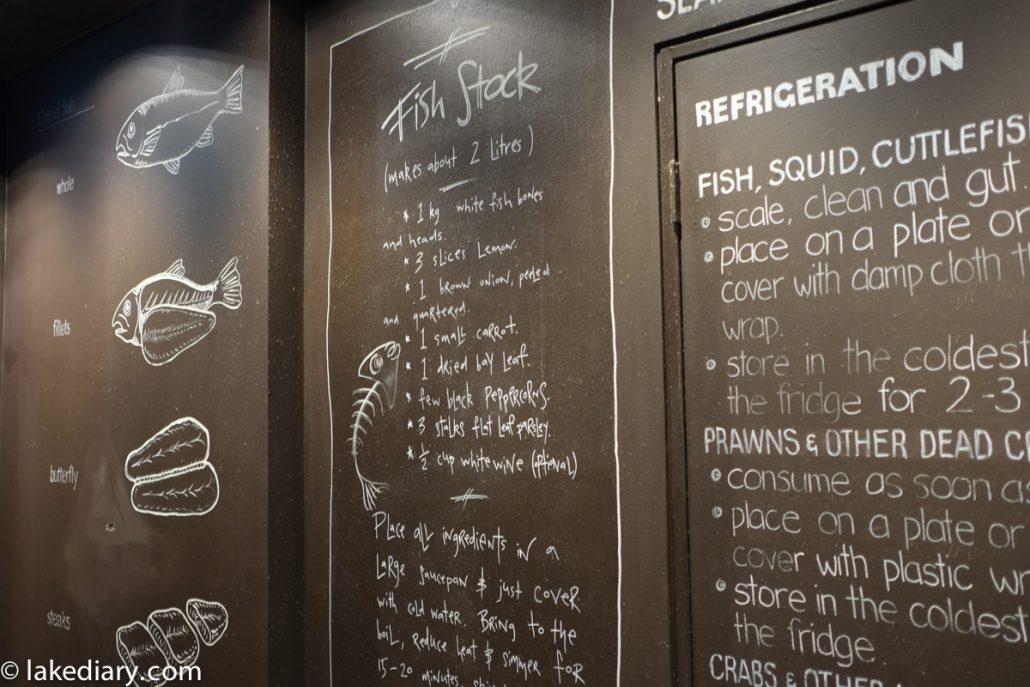 Cuts of fish
whole
fillets
butterfly
steaks
Fish Stock
(makes about 2 Litres)
* 1 kg white fish bones
and heads.
* 3 slices Lemon.
* 1 brown onion, peeled
and quartered.
* 1 small carrot.
* 1 dried bay leaf.
* few black peppercorns.
* 3 stalks flat leaf parsley.
* ½ cup white wine (optional)
Place all ingredients in a
large saucepan & just cover
with cold water. Bring to the
boil, reduce heat & simmer for
15-20 minutes.
REFRIGERATION
FISH, SQUID, CUTTLEFIS
• scale, clean and gut.
• place on a plate or
cover with damp cloth th
wrap.
• store in the coldest
the fridge for 2-3
PRAWNS & OTHER DEAD C
• consume as soon as
• place on a plate or
cover with plastic wr
• store in the coldest
the fridge.
CRABS & OTHER
© lakediary.com